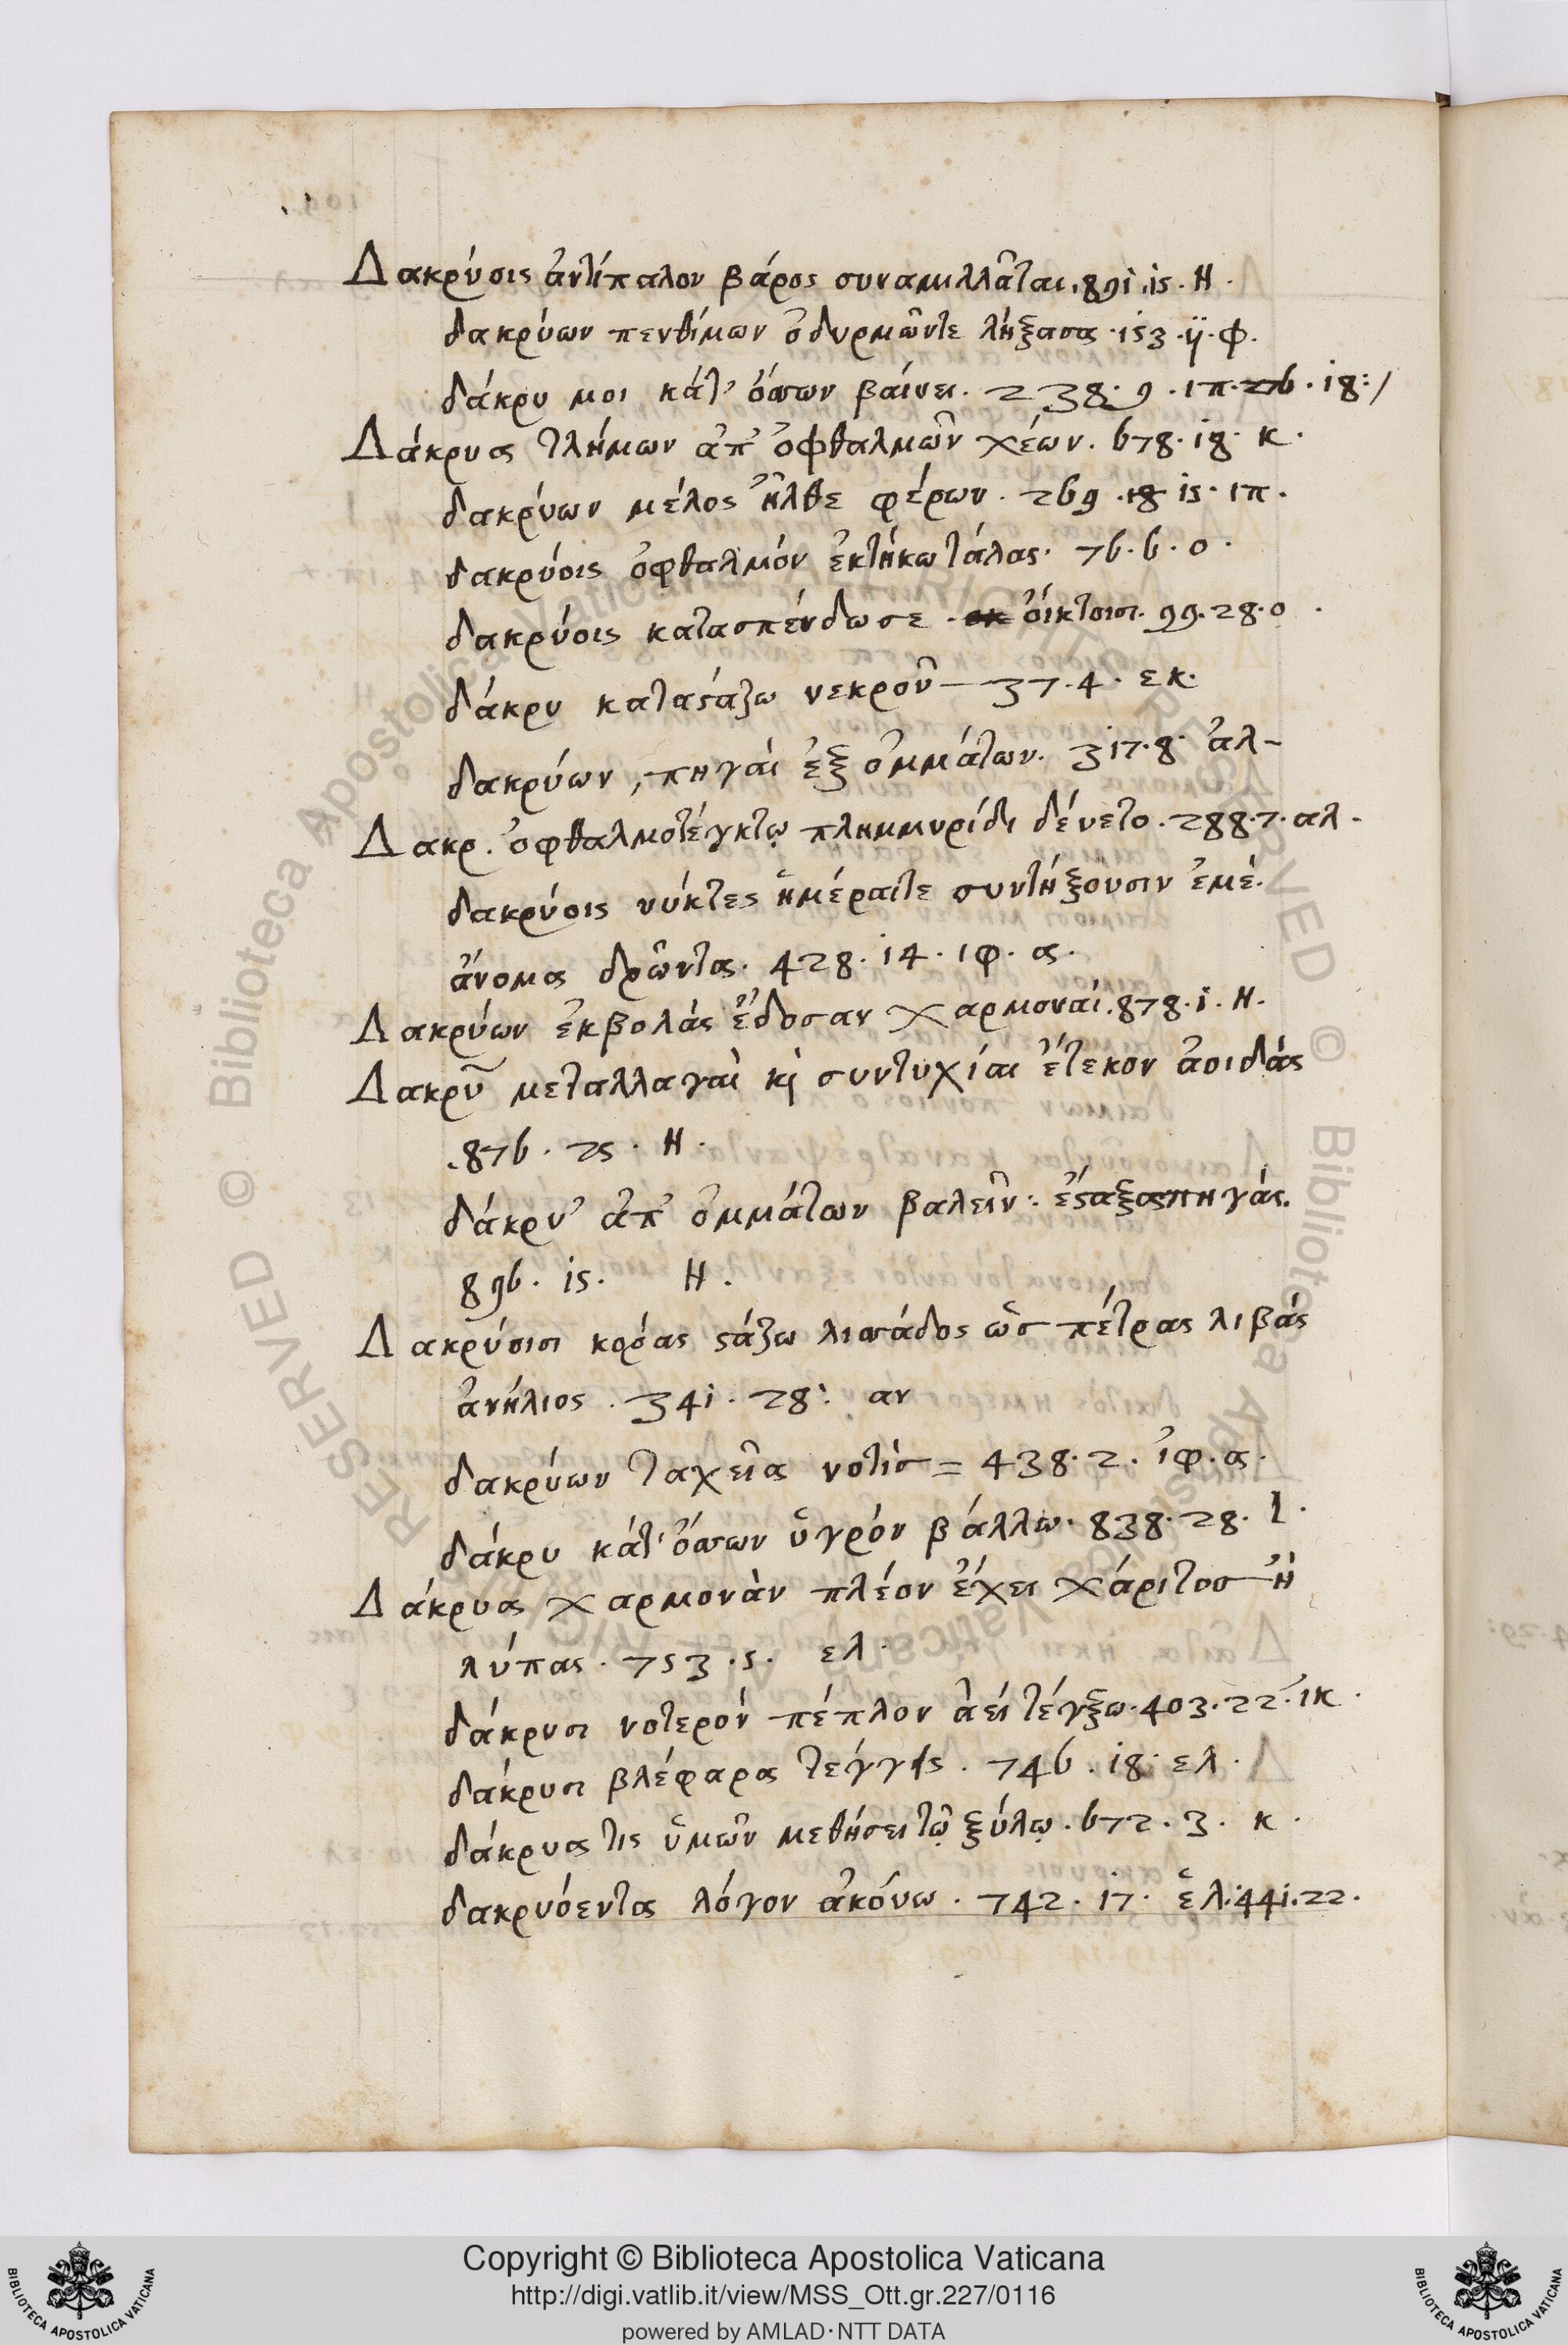 Δακρύσις ἀντίπαλον βάρος συναμιλλᾶται. 891. 15. Η.
δακρύων πενθίμων ὀδυρμῶντε λήξασα. 153. ÿ. φ.
δάκρυ μοι κάτ' ὄσσων βαίνει. 238. 9. ιπ. 276. 18:/
Δάκρυα τλήμων ἀπ' ὀφθαλμῶν χέων. 678. 18. κ.
δακρύων μέλος ἦλθε φέρων. 269. 18 15. ιπ.
δακρύοις ὀφθαλμόν ἐκτήκω τάλας. 76. 6. ο.
δακρύοις κατασπένδωσε. οἴκτοισι. 99. 28. ο.
δάκρυ καταϛάζω νεκροῦ — 37. 4. εκ.
δακρύων, πηγαὶ ἐξ ὀμμάτων. 317. 8. ἀλ-
Δακρ. ὀφθαλμοτέγκτῳ πλημμυρίδι δένετο. 288. 7. αλ.
δακρύοις νύκτες ἡμέραιτε συντήξουσιν ἐμέ.
ἄνομα δρῶντα. 428. 14. ιφ. α.
Δακρύων ἐκβολάς ἔδοσαν χαρμοναί. 878. 1. Η.
Δακρύ῀ μεταλλαγαὶ κ̀ συντυχίαι ἔτεκον ἀοιδάς
. 876. 25. Η.
δάκρυ' ἀπ' ὀμμάτων βαλεῖν: ἔϛαξας πηγάς.
896. 15. Η.
Δακρύσισι κόρας ϛάζω λισσάδος ὡς πέτρας λιβάς
ἀνήλιος. 341. 28: αν
δακρύων ταχεῖα νοτὶσ = 438. 2. ἰφ. α.
δάκρυ κάτ' ὄσσων ὑγρόν βάλλω. 838. 28. Ι.
Δάκρυα χαρμονὰν πλέον ἔχει χάριτοσ ἢ
λύπας. 753. 5. ελ.
δάκρυσι νοτερόν πέπλον ἀεί τέγξω. 403. 22. ἰκ.
δάκρυσι βλέφαρα τέγγεις. 746. 18. ελ.
δάκρυα τις ὑμῶν μεθήσει τῷ ξύλῳ. 672. 3. κ.
δακρυόεντα λόγον ἀκούω. 742. 17. ἑλ. 441. 22.
Copyright © Biblioteca Apostolica Vaticana
http://digi.vatlib.it/view/MSS_Ott.gr.227/0116
powered by AMLAD·NTT DATA